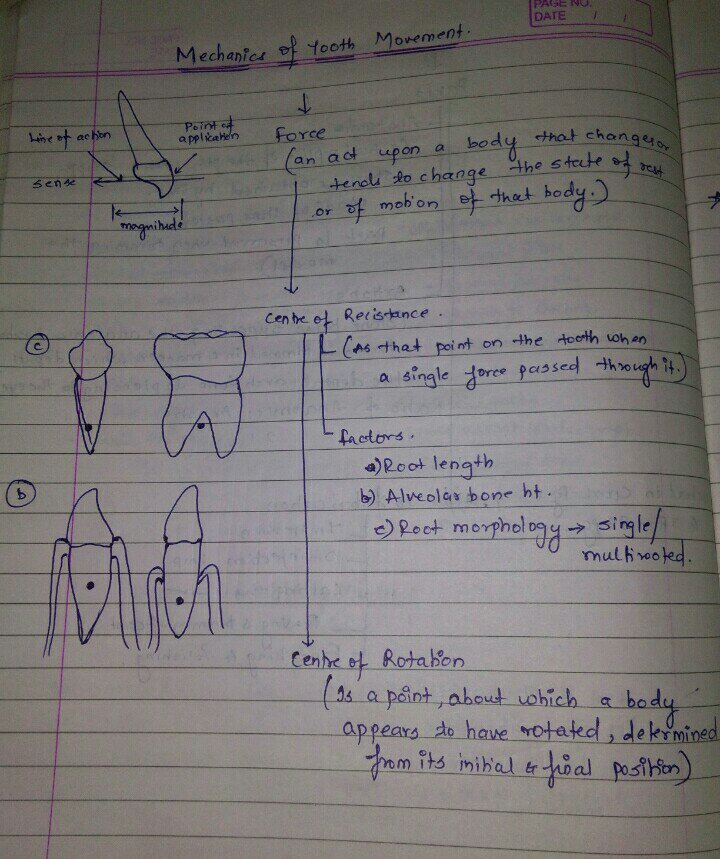 PAGE NO.
DATE / /
Mechanics of Tooth Movement.
Line of action
Point of
application
sense
magnitude
Force
(an act upon a body that changes or
tends to change the state of rest
or of motion of that body.)
Centre of Recistance.
(As that point on the tooth when
a single force passed through it.)
factors.
a) Root length
b) Alveolar bone ht.
c) Root morphology → single/
multirooted.
c
b
Centre of Rotation
(Is a point, about which a body
appears to have rotated, determined
from its initial & final position)